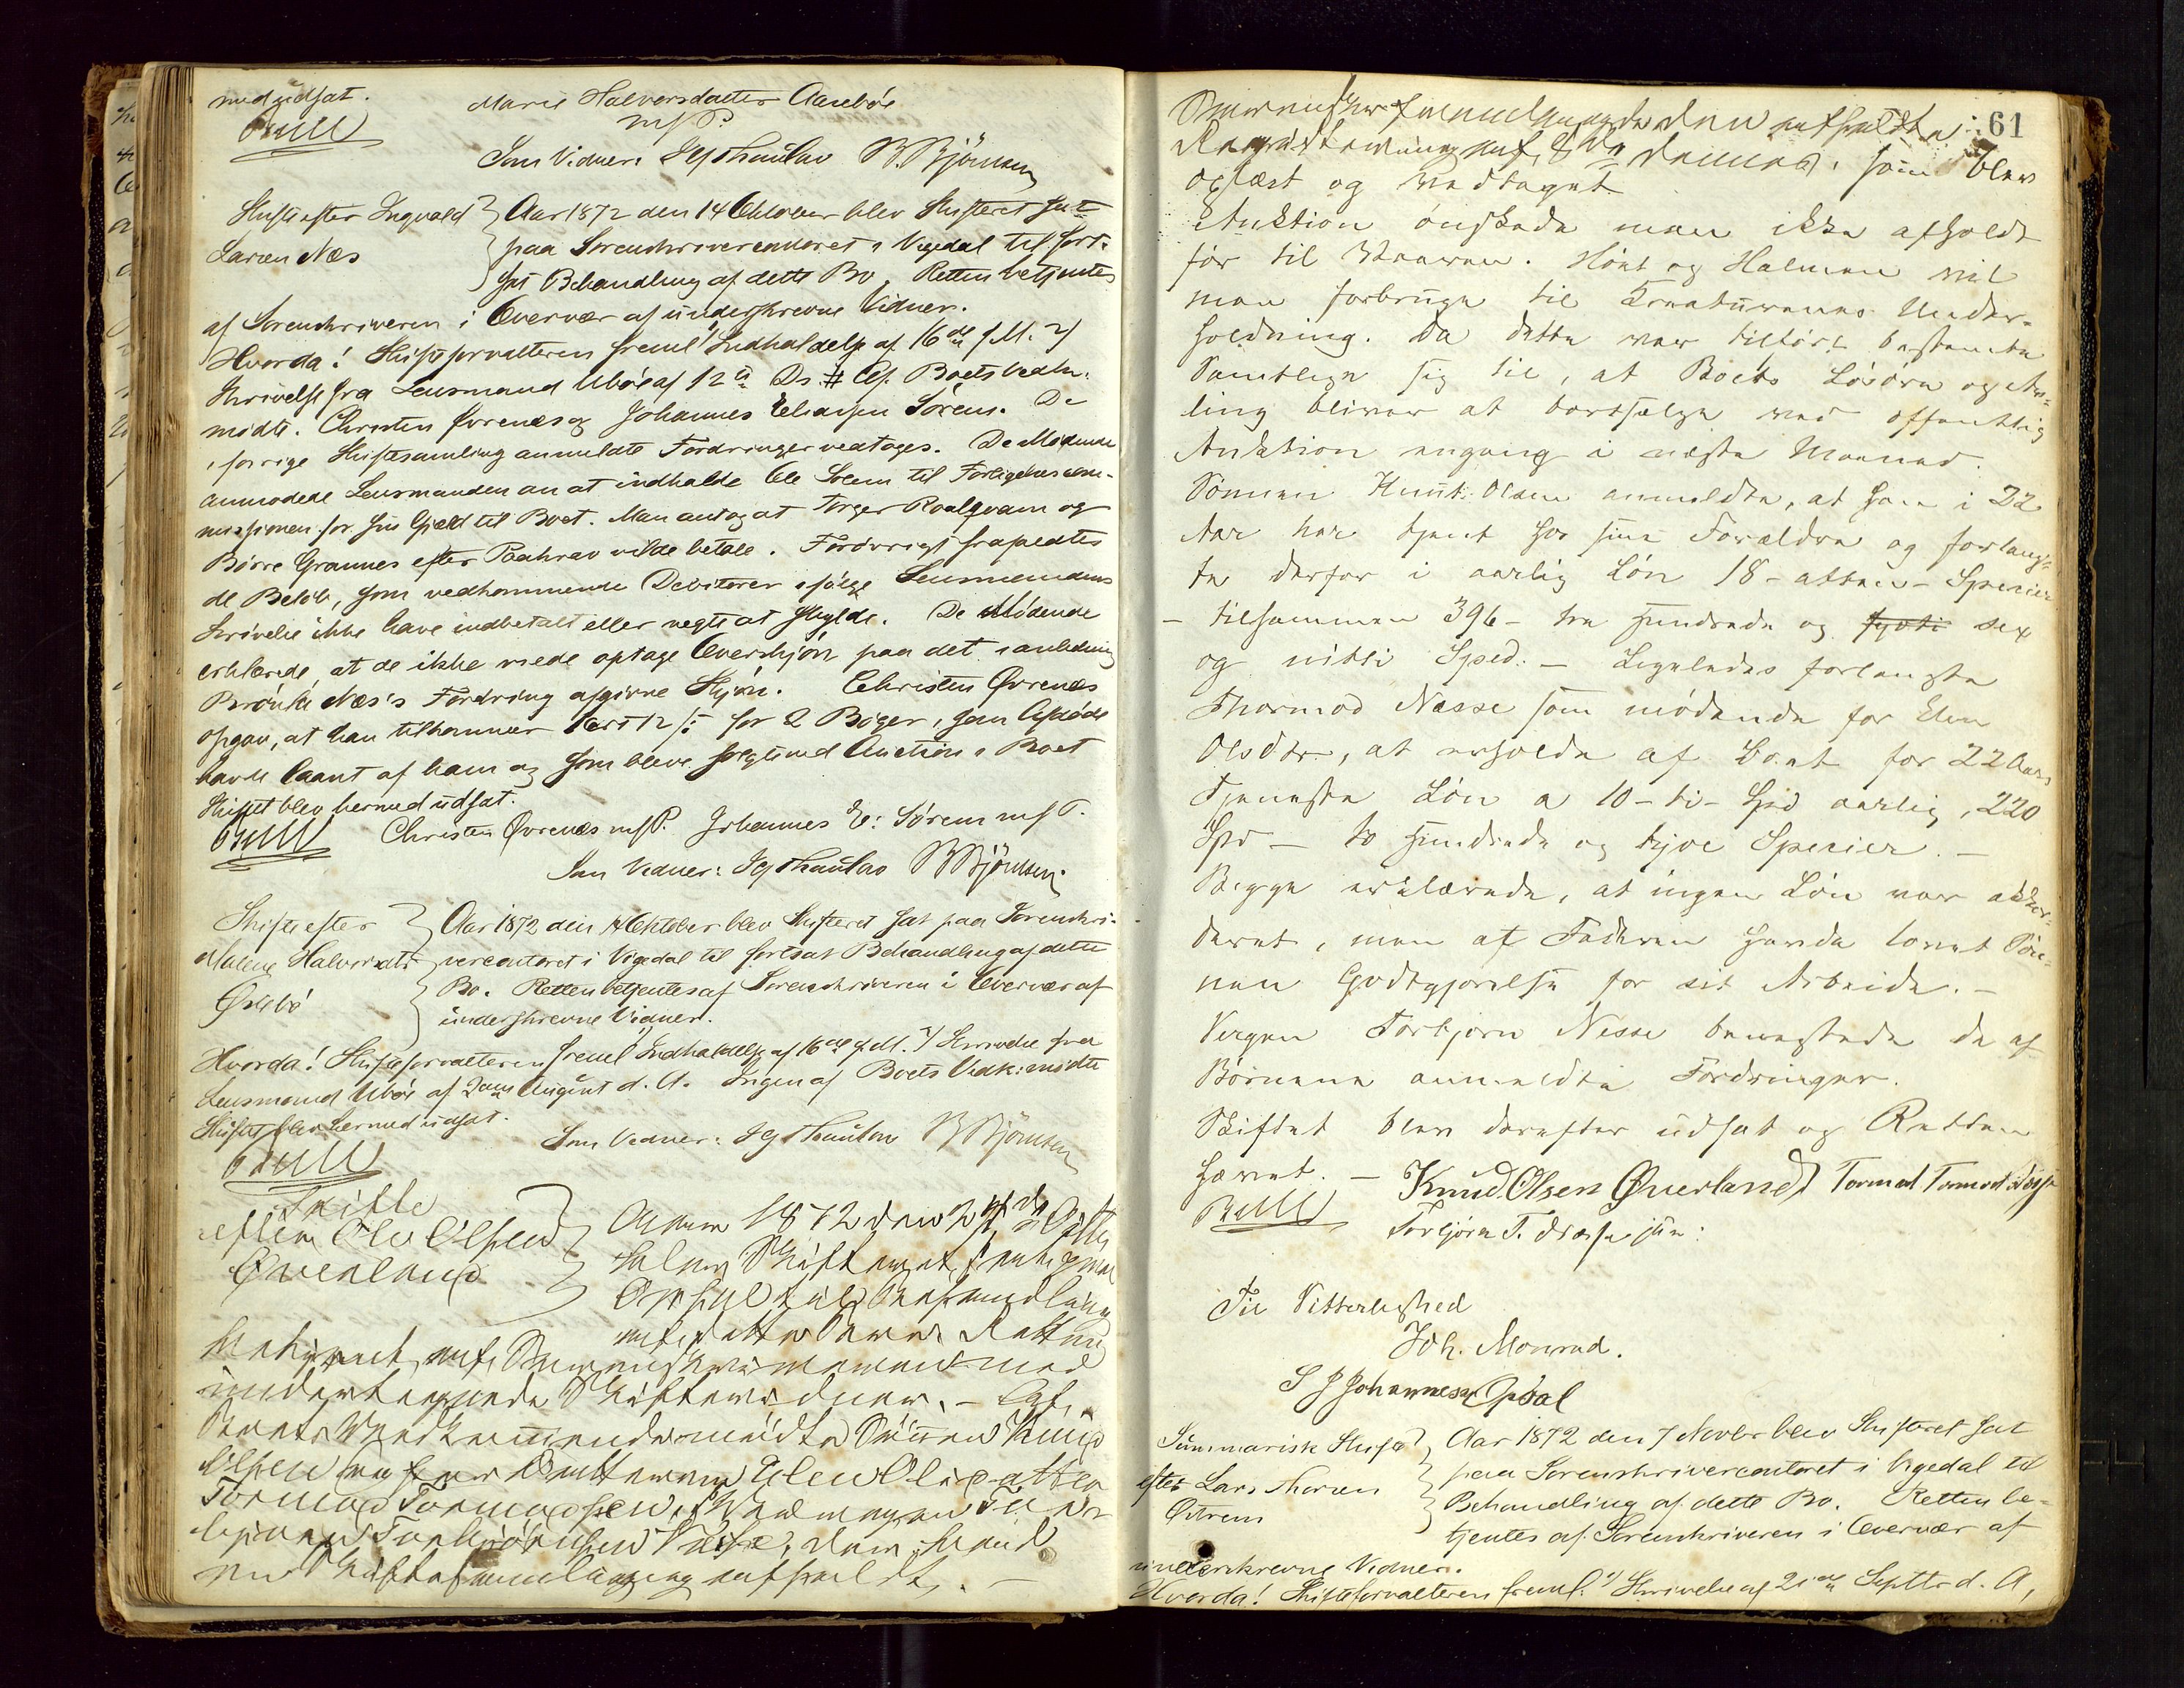 med udsat.
Marie Halvorsdatter Aarebøe
m/P.
Som Vidner:
Skifte efter Ingvald
Larsen Næs
Aar 1872 den 14 Oktober blev Skifteret sat
paa Sorenskrivercontoret i Vigedal til fort-
sat Behandling af dette Bo. Retten betjentes
af Sorenskriveren i Overvær af underskrevne Vidner.
Hvorda! Skifteforvalteren freml Indkaldelse af 16de f.M. 2)
Skrivelse fra Lensmand Ubøe af 12te Ds. Af Boets Vedk.
mødte. Christen Øvrenes og Johannes Eliassen Sørem. De
i forrige Skiftesamling anmeldte Fordringer vedtoges. De Mødende
anmodede Lensmanden om at indkalde Ole Solem til Forligelsescom-
missionen for sin Gjæld til Boet. Man antog at Torger Roalqvam og
Børre Grannes efter Paakrav vilde betale. Forøvrigt frafaldtes
de Beløb, som vedkommende Debitorer ifølge Lensmandens
Skrivelse ikke have indbetalt eller negtet at skylde. De Mødende
erklærede, at de ikke vilde optage Overskjøn paa det i anledning
Brønle Næs's Fordring afgivne Skjøn. Christen Øvrenes
opgav, at han tilkommer 1 ort 12 s: for 2 Bøger, som Afdøde
havde laant af ham og som bleve solgt ved Auction i Boet
Skiftet blev hermed udsat.
Christen Øvrenes m/P. Johannes E: Sørem m/P.
Som Vidner:
Skifte efter
Malene Halvorsdtr
Øslebø
Aar 1872 den 14 Oktober blev Skifteret sat paa Sorenskri-
vercontoret i Vigedal til fortsat Behandling af dette
Bo. Retten betjentes af Sorenskriveren i Overvær af
underskrevne Vidner.
Hvorda! Skifteforvalteren freml Indkaldelse af 16de f.M. 2) Skrivelse fra
Lensmand Ubøe af 2den August d. A. Ingen af Boets Vedk: mødte
Skiftet blev hermed udsat.
Som Vidner:
Skifte
efter Ole Olsen
Øverland
Anno 1872 den
blev Skifteret sat
Opsal til Behandling
af dette Bo. Retten
betjent af med
undertegnede Skiftevidner. – Af
Boets Vedkommende mødte Sønnen Knud
Olsen og for Datteren Elen Olsdatter
Tormod Tormodsen, Tor-
bjørn Torbjørnsen Nesse,
Skiftesamling afholdt. –
61
den afholdte
Registrering af 8de dennes, som blev
oplæst og vedtaget
Auktion ønskede man ikke afholdt
før til Vaaren. Høet og Halmen vil
man forbruge til Kreaturenes Under-
holdning. Da dette var tilført bestemte
Samtlige sig til, at Boets Løsøre og Av-
ling bliver at bortsælge ved offentlig
Auktion engang i næste Maaned.
Sønnen Knut Olsen anmeldte, at han i 22
Aar har tjent hos sine Forældre og forlang-
te derfor i aarlig Løn 18 – atten – Specier
– tilsammen 396 – tre hundrede og sex
og nitti Sped. – Ligeledes forlangte
Thormod Nesse som mødende for Elen
Olsdtr., at erholde af Boet for 22 Aars
Tjeneste Løn a 10 – ti – Spd aarlig, 220
Spd – to hundrede og tyve Specier. –
Begge erklærede, at ingen Løn var akkor-
deret, men at Faderen havde lovet Søn-
nen Godtgjørelse for sit Arbeide. –
Vergen Torbjørn Nesse benegtede de af
Børnene anmeldte Fordringer.
Skiftet blev derefter udsat og Retten
hævet. – Knud Olsen Øverland Tormod Tormodsen
Torbjørn T. Næsse jun:
Til Vitterlighed
Joh. Monrad.
S J Johannesen Opsal
Summarisk Skifte
efter Lars Thorsen
Østrem
Aar 1872 den 7 Novbr blev Skifteret sat
paa Sorenskrivercontoret i Vigedal til
Behandling af dette Bo. Retten be-
tjentes af Sorenskriveren i Overvær af
underskrevne Vidner.
Hvorda! Skifteforvalteren freml: 1) Skrivelse af 21de Septbr d. A,